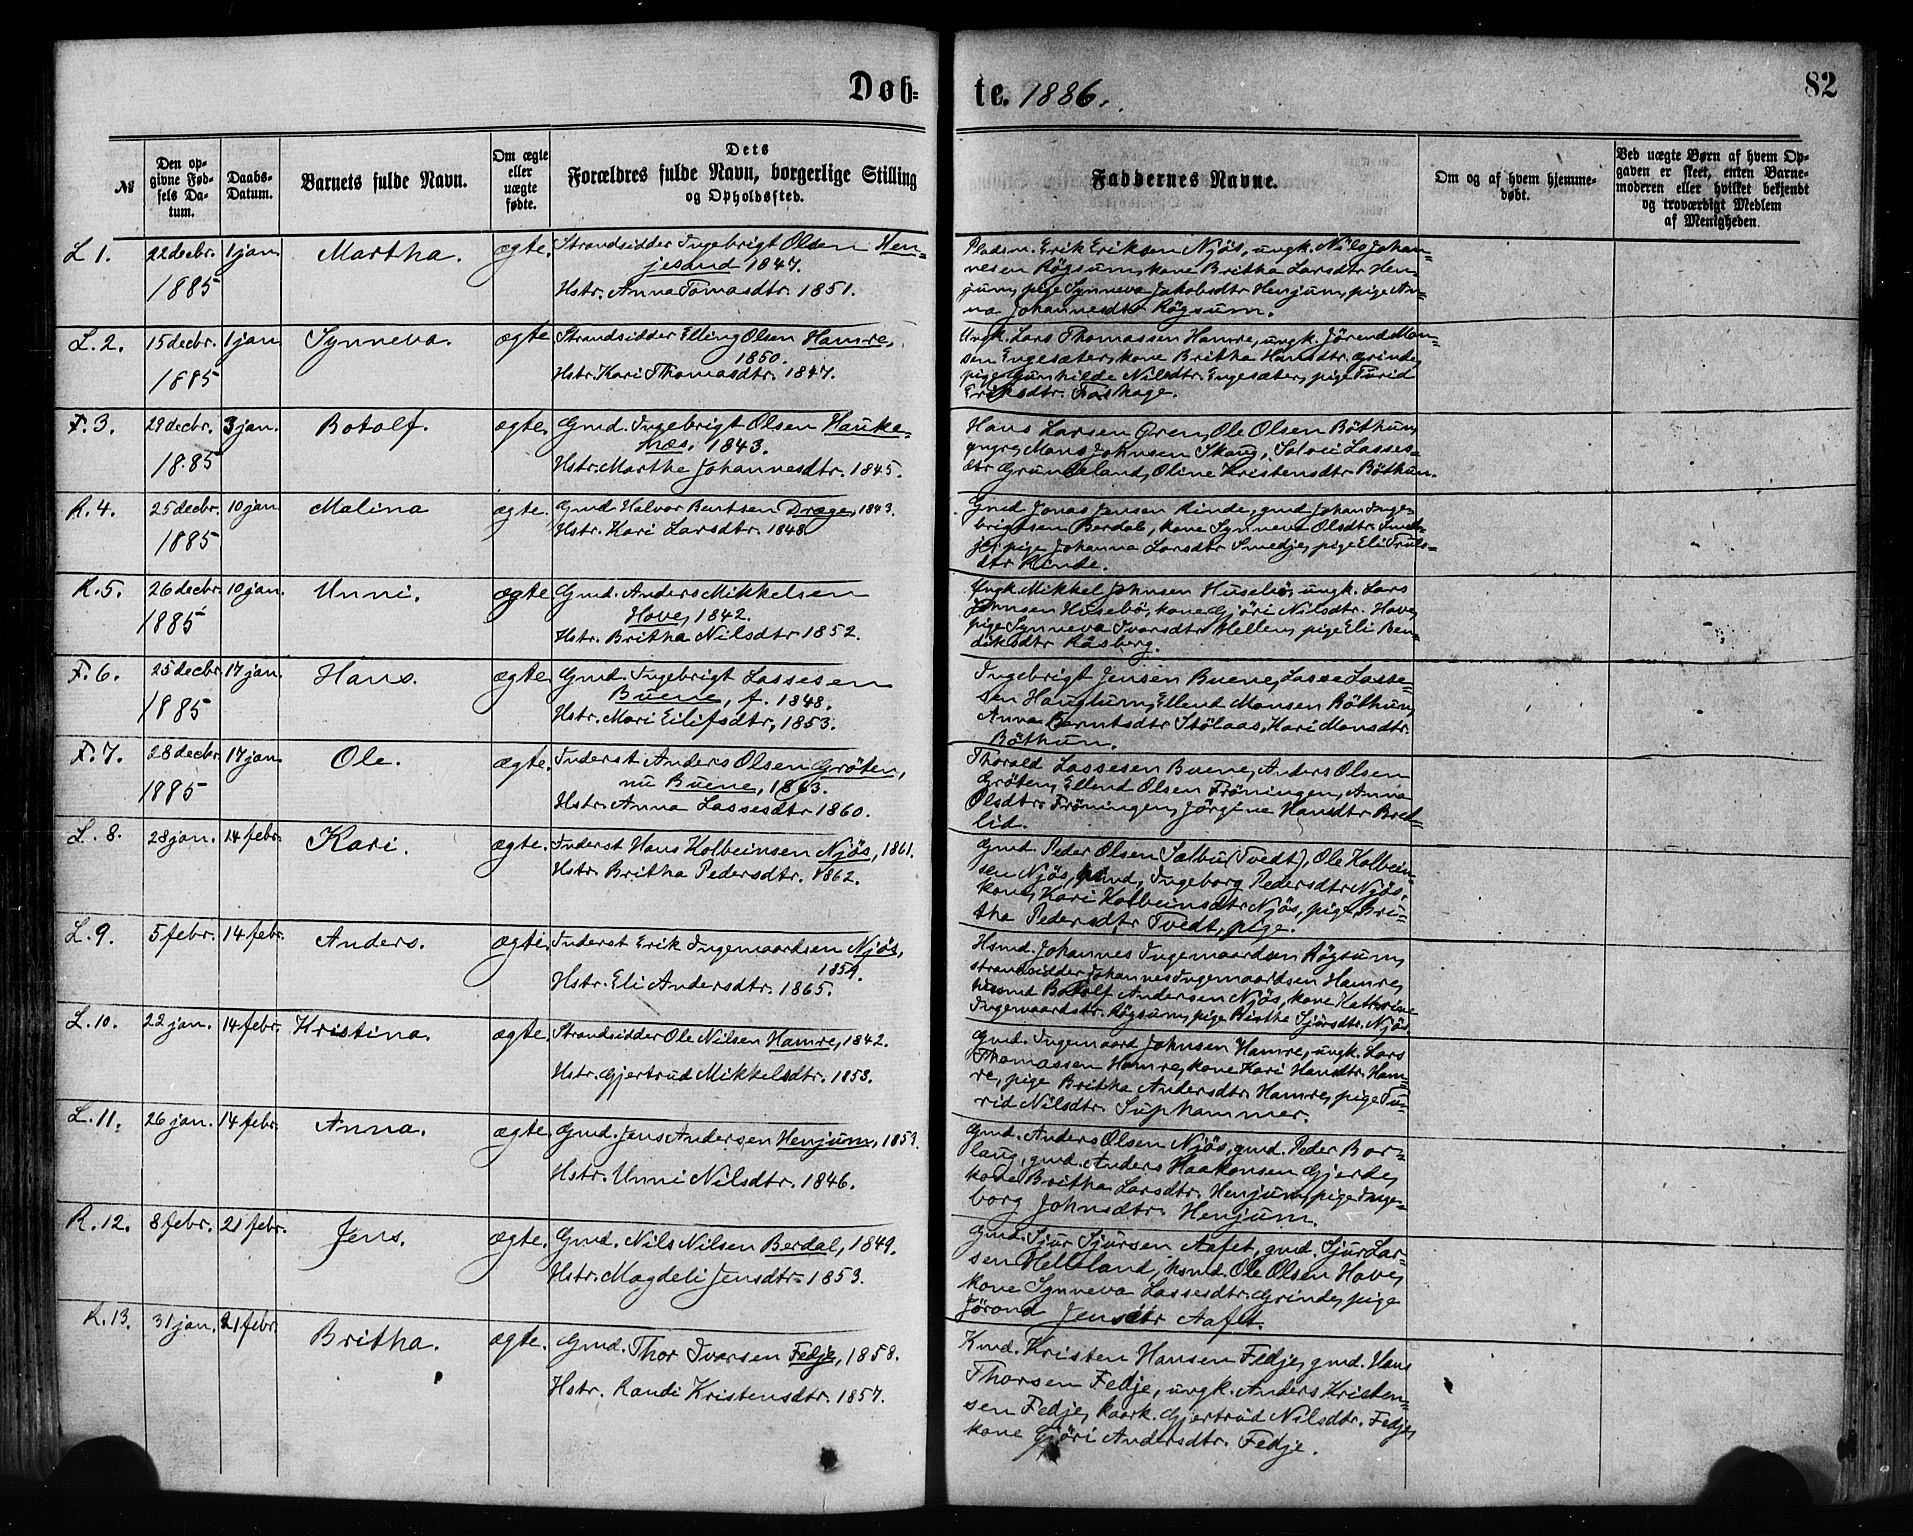 Døb=
te. 1886.
82
№
Den op-
givne Fød-
sels Da-
tum.
Daabs-
Datum.
Barnets fulde Navn.
Om ægte
eller
uægte
fødte.
Dets
Forældres fulde Navn, borgerlige Stilling
og Opholdssted.
Faddernes Navne.
Om og af hvem hjemme-
døbt.
Ved uægte Børn af hvem Op-
gaven er skeet, enten Barne-
moderen eller hvilket bekjendt
og troværdigt Medlem
af Menigheden.
L 1.
22 decbr.
1885
1 jan.
Martha.
ægte.
Strandsidder Ingebrigt Olsen Hen-
jesand 1847.
Hstr. Anna Tomasdtr. 1851.
Pladsm. Erik Eriksen Njøs, ungk. Nils Johan-
nesen Røgsum, kone Britha Larsdtr Hen-
jum, pige Synneva Jakobsdtr Henjum, pige An-
na Johannesdtr Røgsum.
L. 2.
15 decbr.
1885
1 jan.
Synneva.
ægte.
Strandsidder Elling Olsen Hamre,
1850.
Hstr. Kari Thomasdtr. 1847.
Ungk. Lars Thomassen Hamre, ungk. Jørend Mon-
sen Engesæter, kone Britha Hansdtr. Grinde,
pige Gunhilde Nilsdtr. Engesæter, pige Turid
Eriksdtr. Foshage.
F. 3.
29 decbr.
1885
3 jan.
Botolf.
ægte.
Gmd. Ingebrigt Olsen Hauke-
næs, 1843.
Hstr. Marthe Johannesdtr. 1845.
Hans Larsen Gren, Ole Olsen Bøthun,
yngre, Mons Johnsen Skaug, Solvei Lasses-
dtr Grundeland, Oline Kristensdtr Bøthun.
R. 4.
25 decbr.
1885
10 jan
Malina
ægte.
Gmd Halvor Bentsen Dræge, 1843.
Hstr. Kari Larsdtr. 1848.
Gmd Jonas Jensen Rinde, gmd Johan Inge-
brigtsen Berdal, kone Synneva Olsdtr. Smed-
je, pige Johanna Larsdtr Smedje, pige Eli Truls-
dtr Rinde.
R. 5.
26 decbr.
1885
10 jan.
Unni.
ægte
Gmd. Anders Mikkelsen
Hove, 1842.
Hstr. Britha Nilsdtr 1852.
Ungk Mikkel Johnsen Husebø, ungk. Lars
Johnsen Husebø, kone Gjøri Nilsdtr. Hove,
pige Synneva Ivarsdtr Hellen, pige Eli Ben-
diksdtr Råsberg.
F. 6.
25 decbr
1885
17 jan.
Hans.
ægte.
Gmd. Ingebrigt Lassesen
Buene, f. 1848.
Hstr. Mari Eilifsdtr, 1853.
Ingebrigt Jensen Buene, Lasse Lasse-
sen Hauglum, Ellend Monsen Bøthun,
Anna Berntsdtr Stølaas, Kari Monsdtr.
Bøthun.
F. 7.
28 decbr
1885
17 jan.
Ole.
ægte.
Inderst Anders Olsen Grøten,
nu Buene, 1863.
Hstr. Anna Lassesdtr 1860.
Thorald Lassesen Buene, Anders Olsen
Grøten, Ellend Olsen Frøningen, Anna
Olsdtr Frøningen, Jørgine Hansdtr Bred-
lid.
L. 8.
28 jan.
14 febr.
Kari.
ægte.
Inderst Hans Kolbeinsen Njøs, 1861.
Hstr. Britha Pedersdtr. 1862.
Gmd. Peder Olsen Salbu (Tvedt), Ole Kolbein-
sen Njøs, gmd, Ingeborg Pedersdtr Njøs,
kone, Kari Kolbeinsdtr Njøs, pige, Bri-
tha Pedersdtr Tvedt, pige.
L. 9.
5 febr.
14 febr.
Anders.
ægte.
Inderst Erik Ingemaardsen Njøs,
1859.
Hstr. Eli Andersdtr. 1865.
Hsmd. Johannes Ingemaardsen Røgsum,
strandsidder Johannes Ingemaardsen Hamre,
husmd Botolf Andersen Njøs, kone Kathrine
Ingemaardsdtr. Røgsum, pige Birthe Sjursdtr. Njøs
L. 10.
22 jan.
14 febr.
Kristina.
ægte.
Strandsidder Ole Nilsen Hamre, 1842.
Hstr. Gjertrud Mikkelsdtr. 1853.
Gmd. Ingemaard Johnsen Hamre, ungk. Lars
Thomassen Hamre, kone Kari Hansdtr. Ham-
re, pige Britha Andersdtr. Hamre, pige Tu-
rid Nilsdtr. Suphammer.
L. 11.
26 jan.
14 febr.
Anna.
ægte.
Gmd. Jens Andersen Henjum, 1853.
Hstr. Unni Nilsdtr. 1846.
Gmd. Anders Olsen Njøs, gmd. Peder Bor-
laug, gmd. Anders Haakonsen Gjerde,
kone Britha Larsdtr. Henjum, pige Inge-
borg Johnsdtr. Henjum.
R. 12.
8 febr.
21 febr.
Jens.
ægte.
Gmd. Nils Nilsen Berdal, 1849.
Hstr. Magdeli Jensdtr 1853.
Gmd. Sjur Sjursen Aafet, gmd. Sjur Lar-
sen Helleland, hsmd. Ole Olsen Hove,
kone Synneva Lassesdtr. Grinde, pige
Jørond Jensdtr Aafet.
R. 13.
31 jan.
21 febr.
Britha.
ægte.
Gmd. Thor Ivarsen Fedje, 1858.
Hstr. Randi Kristensdtr. 1857.
Kmd. Kristen Hansen Fedje, gmd. Hans
Thorsen Fedje, ungk. Anders Kristen-
sen Fedje, kaark. Gjertrud Nilsdtr. Fedje,
kone Gjøri Andersdtr. Fedje.